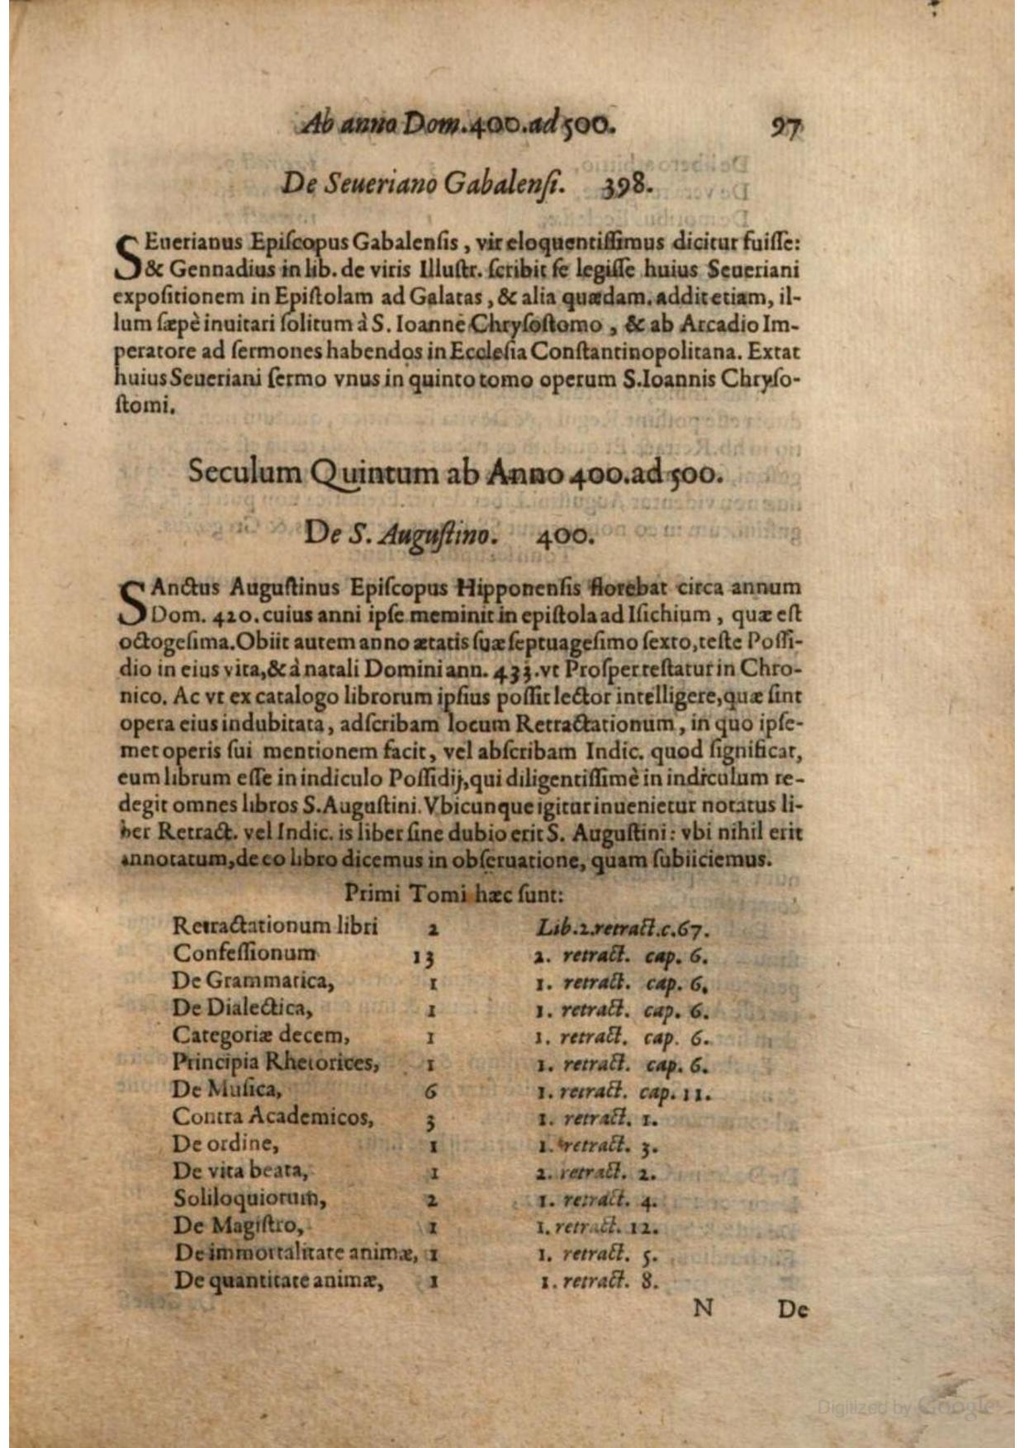 Ab anno Dom. 400. ad 500. 97
De Seueriano Gabalensi. 398.
SEuerianus Episcopus Gabalensis, vir eloquentissimus dicitur fuisse:
& Gennadius in lib. de viris Illustr. scribit se legisse huius Seueriani
expositionem in Epistolam ad Galatas, & alia quædam. addit etiam, il-
lum sæpè inuitari solitum à S. Ioanne Chrysostomo, & ab Arcadio Im-
peratore ad sermones habendos in Ecclesia Constantinopolitana. Extat
huius Seueriani sermo vnus in quinto tomo operum S. Ioannis Chryso-
stomi.
Seculum Quintum ab Anno 400. ad 500.
De S. Augustino. 400.
SAnctus Augustinus Episcopus Hipponensis florebat circa annum
Dom. 420. cuius anni ipse meminit in epistola ad Isichium, quæ est
octogesima. Obiit autem anno ætatis suæ septuagesimo sexto, teste Possi-
dio in eius vita, & à natali Domini ann. 433. vt Prosper testatur in Chro-
nico. Ac vt ex catalogo librorum ipsius possit lector intelligere, quæ sint
opera eius indubitata, adscribam locum Retractationum, in quo ipse-
met operis sui mentionem facit, vel abscribam Indic. quod significat,
eum librum esse in indiculo Possidij, qui diligentissimè in indiculum re-
degit omnes libros S. Augustini. Vbicunque igitur inuenietur notatus li-
ber Retract. vel Indic. is liber sine dubio erit S. Augustini: vbi nihil erit
annotatum, de eo libro dicemus in obseruatione, quam subiiciemus.
Primi Tomi hæc sunt:
Retractationum libri 2 Lib. 2. retract. c. 67.
Confessionum 13 2. retract. cap. 6.
De Grammatica, 1 1. retract. cap. 6.
De Dialectica, 1 1. retract. cap. 6.
Categoriæ decem, 1 1. retract. cap. 6.
Principia Rhetorices, 1 1. retract. cap. 6.
De Musica, 6 1. retract. cap. 11.
Contra Academicos, 3 1. retract. 1.
De ordine, 1 1. retract. 3.
De vita beata, 1 2. retract. 2.
Soliloquiorum, 2 1. retract. 4.
De Magistro, 1 1. retract. 12.
De immortalitate animæ, 1 1. retract. 5.
De quantitate animæ, 1 1. retract. 8.
N De
Digitized by Google